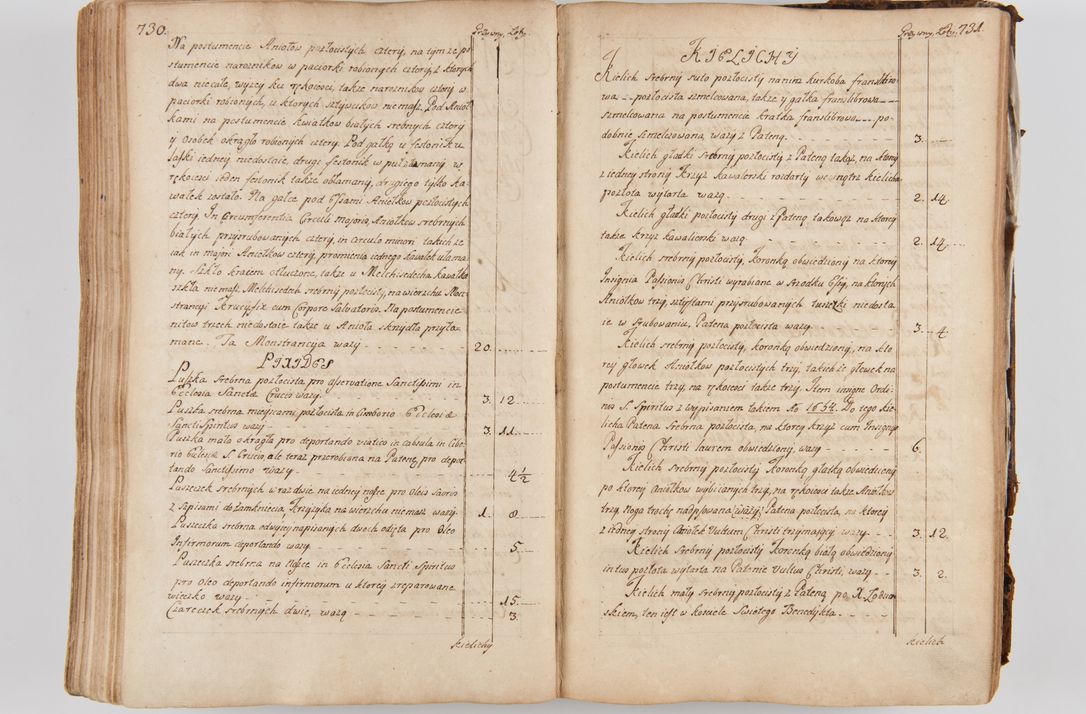 730.
Grzywny, Łoty.
Na postumencie Aniołów pozłocistych cztery, na tym ze po
stumencie narozników w paciorki robionych cztery, z których
dwa niecałe, wyzey ku rękoieści, także narozników cztery w
paciorki robionych, u których sztywusków niemasz. Pod Anioł
kami na postumencie kwiatków białych srebnych cztery
y Osobek okrągło robionych cztery. Pod gałką u festoniku
łapki iedney niedostaie, drugi festonik w puł ułamany w
rękoieści ieden festonik także obłamany, drugiego tylko ka
wałek został. Na gałce pod Głpsami Aniołków pozłocistych
cztery. In Circumferentia Circuli majoris, Aniołków srebrnych
białych przysrubowanych cztery, in circulo minori takich ze
iak in majori Aniołków cztery, promienia iednego kawałek ułama
ny. Szkło kraiem otłuczone, także u Melchisedecha kawałka
szkła niemasz. Melchisedech srebrny pozłocisty, na wierzchu Mon
strancyi Krucyfix cum Corpore Salvatoris. Na postumencie
nitów trzech niedostaie także u Anioła skrzydła przyła
mane. Ta Monstrancya wazy - - - 20.
PIXIDES
Puszka srebrna pozłocista pro asservatione Sanctissimi in
Ecclesia Sanctæ Crucis wazy. - - - 3. 12
Puszka srebrna mieyscami pozłocista in Cimborio Ecclesiæ
Sancti Spiritus wazy - - - 3. 11.
Puszka mała okrągła pro deportando viatico in capsula in Cibo
rio Ecclesiæ S. Crucis, ale teraz przerobiana na Patenę, pro depor
tando Sanctissimo wazy - - - 4 1/2
Puszeczek srebrnych wraz dwie na iedney nożce pro Oleis Sacris
z napisami do zamknięcia, Krzyzyka na wierzchu niemasz wazy. 1. 8.
Puszeczka srebrna od wyzey napisanych dwoch odięta pro Oleo
Infirmorum deportando wazy - - - 5.
Puszeczka srebrna na Nożce in Ecclesia Sancti Spiritus
pro Oleo deportando infirmorum u ktorey zreparowane
wieczko wazy - - - 15.
Czareczek srebrnych dwie, wazą - - - 3.
Kielichy
Grzywny, Łoty. 731.
KIELICHY
Kielich srebrny suto pozłocisty na nim kurkoba franslibro
wa - - pozłocista szmelcowana, także y gałka franslibrowa - -
szmelcowana na postumencie kratka franslibrowa - - po-
dobnie szmelcowana, wazy z Pateną. - - - 3.
Kielich gładki srebrny pozłocisty z Pateną takąz, na ktorey
z iedney strony Krzyz Kawalerski rozdarty wewnątrz kielicha
pozłota wytarta wazą. - - - 2. 14.
Kielich gładki pozłocisty drugi z Pateną takowąz na ktorey
także krzyz kawalierski wazą. - - - 2. 14.
Kielich srebrny pozłocisty, koronką obwiedziony na ktorey
Insignia Passionis Christi wyrobiane w Srodku Essy, na ktorych
Aniołków trzy, sztyftami przysrubowanych łuszki niedosta
ie w srubowaniu, Patena pozłocista wazy - - - 3. 4.
Kielich srebrny pozłocisty, koronką obwiedziony, na kto
rey główek Aniołków pozłocistych trzy, takichże główek na
postumencie trzy, na rękoieści także trzy. Item insigne Ordi
nis S. Spiritus z wypisaniem takiem Ao 1654. Do tego kie
licha Patena srebrna pozłocista, na ktorey krzyz cum Insigniis
Passionis Christi laurem obwiedziony, wazy - - - 6.
Kielich srebrny pozłocisty koronką gładką obwiedziony
po ktorey Aniołków wybiianych trzy, na rękoieści także Aniołków
trzy, Noga trochę nadpsowana (wazy;) Patena pozłocista, na ktorey
z iedney strony Aniołek Vultum Christi trzymaiący wazy - - - 3. 12.
Kielich srebrny pozłocisty koronką białą obwiedziony
intus pozłota wytarta na Patenie Vultus Christi, wazy - - - 3. 2.
Kielich mały srebrny pozłocisty z Pateną po X. Zoduw
skiem, ten iest w kościele Swiętego Benedykta. - - -
Kielich